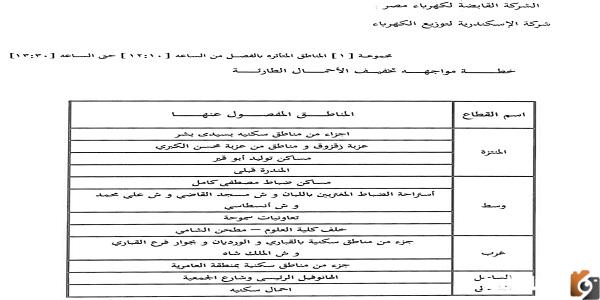 الشركة القابضة لكهرباء مصر
شركة الإسكندرية لتوزيع الكهرباء
مجموعة [١] المناطق المتأثره بالفصل من الساعه [١٢:١٠] حتى الساعه [١٣:٣٠]
خطة مواجهه تخفيف الأحمال الطارئة
اسم القطاع
المناطق المفصول عنها
المنتزة
اجزاء من مناطق سكنيه بسيدى بشر
عزبة زقزوق و مناطق من عزبة محسن الكبرى
مساكن توليد أبو قير
المندرة قبلى
وسط
مساكن ضباط مصطفي كامل
أستراحة الضباط المغتربين باللبان و ش مسجد القاضي و ش على محمد
و ش أنسطاسي
تعاونيات سموحة
خلف كلية العلوم – مطحن الشامى
غرب
جزء من مناطق سكنية بالقبارى و الورديان و بجوار فرع القبارى
و ش الملك شاه
جزء من مناطق سكنية بمنطقة العامرية
الساحل
الهانوفيل الرئيسى وشارع الجمعية
احمال سكنيه